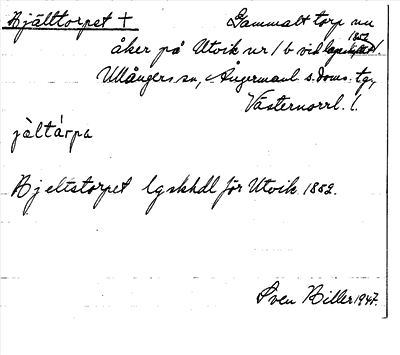 Hjälttorpet † Gammalt torp nu
åker på Utvik nr 1 b vid laga skiftet 1852.
Ullångers sn, Ångermanl. s. doms. tg,
Västernorrl. l.
jàltárpa
Hjeltstorpet lgskhdl för Utvik 1852.
Sven Biller 1947.